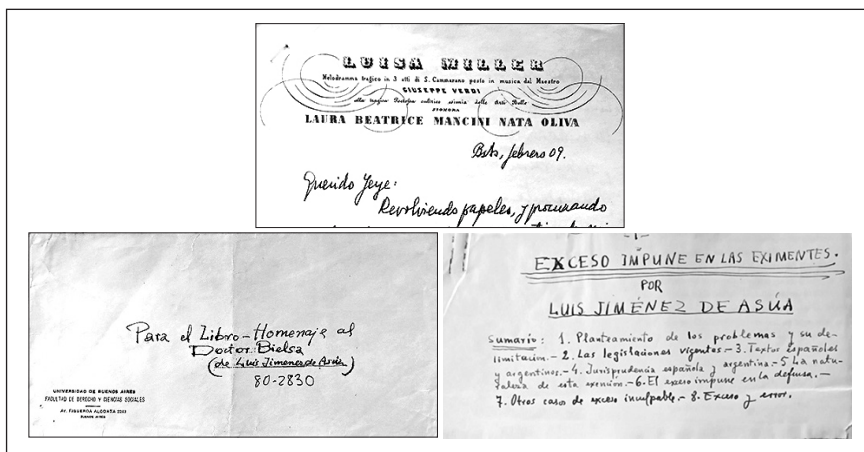 LUISA MILLER
Melodramma tragico in 3 atti di S. Cammarano posto in musica dal Maestro
GIUSEPPE VERDI
alla egregia Poetessa cultrice esimia delle Arti Belle
SIGNORA
LAURA BEATRICE MANCINI NATA OLIVA
BsAs, febrero 09.
Querido Jeye:
Revolviendo papeles, y procurando
Para el Libro-Homenaje al
Doctor Bielsa
(de Luis Jimenez de Asúa)
80-2830
UNIVERSIDAD DE BUENOS AIRES
FACULTAD DE DERECHO Y CIENCIAS SOCIALES
AV. FIGUEROA ALCORTA 2263
BUENOS AIRES
-1-
EXCESO IMPUNE EN LAS EXIMENTES.
POR
LUIS JIMÉNEZ DE ASÚA
Sumario: 1. Planteamiento de los problemas y su de-
limitación.- 2. Las legislaciones vigentes.- 3. Textos españoles
y argentinos.- 4. Jurisprudencia española y argentina.- 5 La natu-
raleza de esta exención.- 6. El exceso impune en la defensa.-
7. Otros casos de exceso inculpable.- 8. Exceso y error.